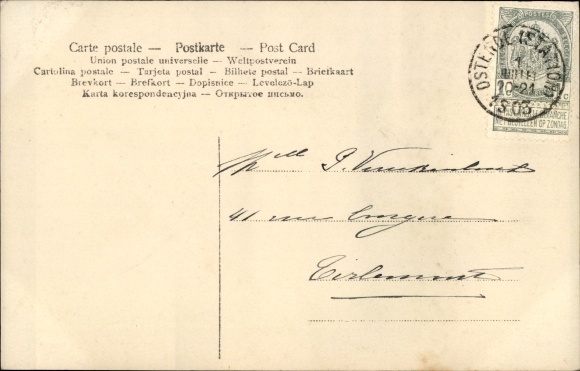 Carte postale — Postkarte — Post Card
Union postale universelle — Weltpostverein
Cartolina postale — Tarjeta postal — Bilhete postal — Briefkaart
Brevkort — Brefkort — Dopisnice — Levelező-Lap
Karta korespondencyjna — Открытое письмо.
OSTENDE (STATION)
20-21
1903
NIET BESTELLEN OP ZONDAG
Mlle P.
41 rue
Tirlemont